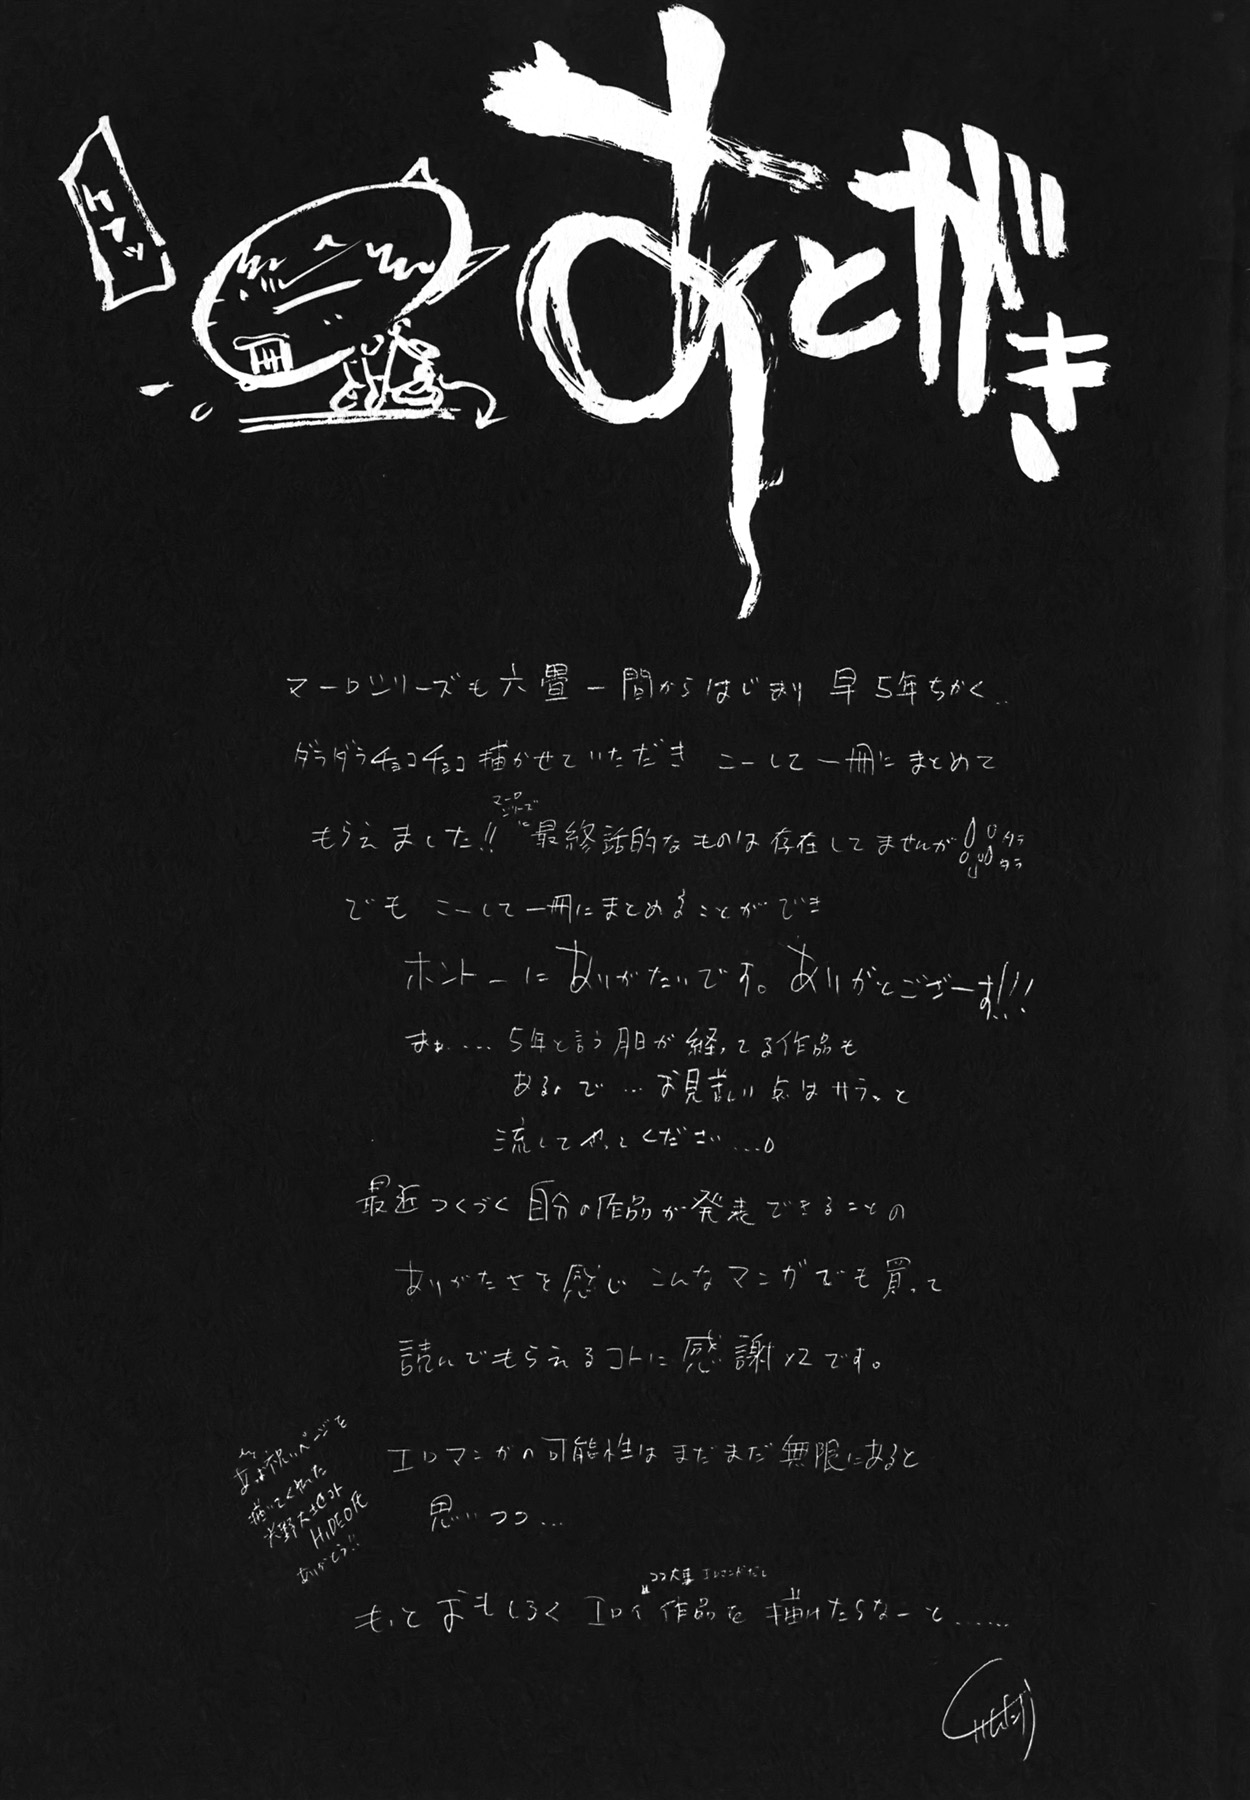 あとがき
ケアッ
マーロシリーズも六畳一間からはじまり 早5年ちかく‥
ダラダラチョコチョコ描かせていただき こーして一冊にまとめて
もらえました!! マーロシリーズに最終話的なものは存在してませんが タラタラ
でも こーして一冊にまとめることができ
ホントーにありがたいです。ありがとございーす!!!
まぁ.... 5年と言う月日が経ってる作品も
あるので...お見苦しい点はサラッと
流してやってください...
最近つくづく自分の作品が発表できることの
ありがたさを感じ こんなマンガでも買って
読んでもらえるコトに感謝×2です。
エロマンガの可能性はまだまだ無限にあると
思いつつ...
ココ大事 エロマンガだし
もっとおもしろくエロイ作品を描けたらなーと......
お祝いページを
描いてくれった
HIDEO氏
ありがとう!!